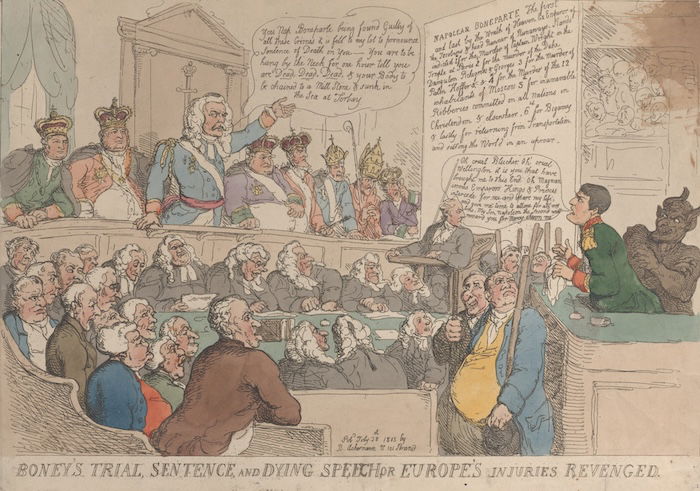 You Nap Bonaparte being found Guilty of
all these Crimes it is fell to my lot to pronounce
Sentence of Death on You — You are to be
hung by the Neck for one hour till you
are Dead, Dead, Dead, & your Body to
be chained to a Mill Stone & sunk in
the Sea at Torbay
NAPOLEAN BONEPARTE The first
and last by the Wrath of Heaven Ex Emperor of
the Jacobins & head Runner of Runaways, Stands
indicted 1st for the Murder of Captain Wright in the
Temple at Paris 2 for the Murder of the Duke
Dangulem Pichegrew & Georges 3 for the Murder of
Palm Hofferd &c 4 for the Murder of the 12
inhabitants of Moscow 5 for inumerable
Robberies committed on all Nations in
Christendom & elsewhere, 6th for Bigamy
& lastly for returning from Transportation
and setting the World in an uproar.
Oh cruel Blucher Oh! cruel
Wellington it is you that have
brought me to this End. Oh Magnan
imous Emperors Kings & Princes
intercede for me and spare my life;
and give me time to atone for all my
My Son Napoleon the Second will
reward you for Mercy shewn me
Pubd July 28 1815 by
R. Ackermann N 101 Strand
BONEY'S TRIAL, SENTENCE, AND DYING SPEECH, OR EUROPE'S INJURIES REVENGED.